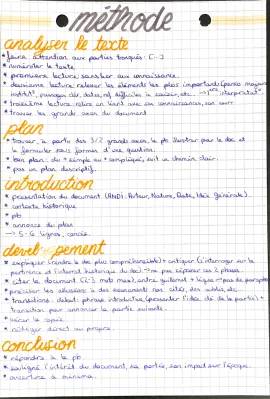 méthode
analyser le texte
* faire attention aux parties tronqués : [...]
* numéroter le texte
* première lecture sans but aux connaissances.
* deuxième lecture relever les éléments les plus importants (perso majeurs
* troisième lecture relire en liant avec ses connaissances, son cours
* trouver les grands axes du document
plan
* trouver, à partir des 3/2 grands axes, le pb illustrer par le doc et
le formuler sous forme d'une question.
* bon plan : du + simple au + compliqué, suit un chemin clair.
* pas un plan descriptif.
introduction
* présentation du document (ANDI : Auteur, Nature, Date, Idée Générale).
* contexte historique
* pb
* annonce du plan
→ 5-6 lignes, concis.
* expliquer (rendre le doc plus compréhensible) + critiquer (s'interroger sur la
pertinence et l'intérêt historique du doc) → ne pas séparer ces 2 phases.
* citer le document ([-] mots max), entre guillemet + ligne → pas de paraphrase
* préciser les allusions à des évènements non cités, des oublis, etc
* transitions : début : phrase introductive (présenter l'idée clé de la partie) +
transition pour annoncer la partie suivante.
* aérer la copie
* rédiger direct au propre
conclusion
* répondre à la pb
* souligné l'intérêt du document, sa portée, son impact sur l'époque.
* ouverture à minima.